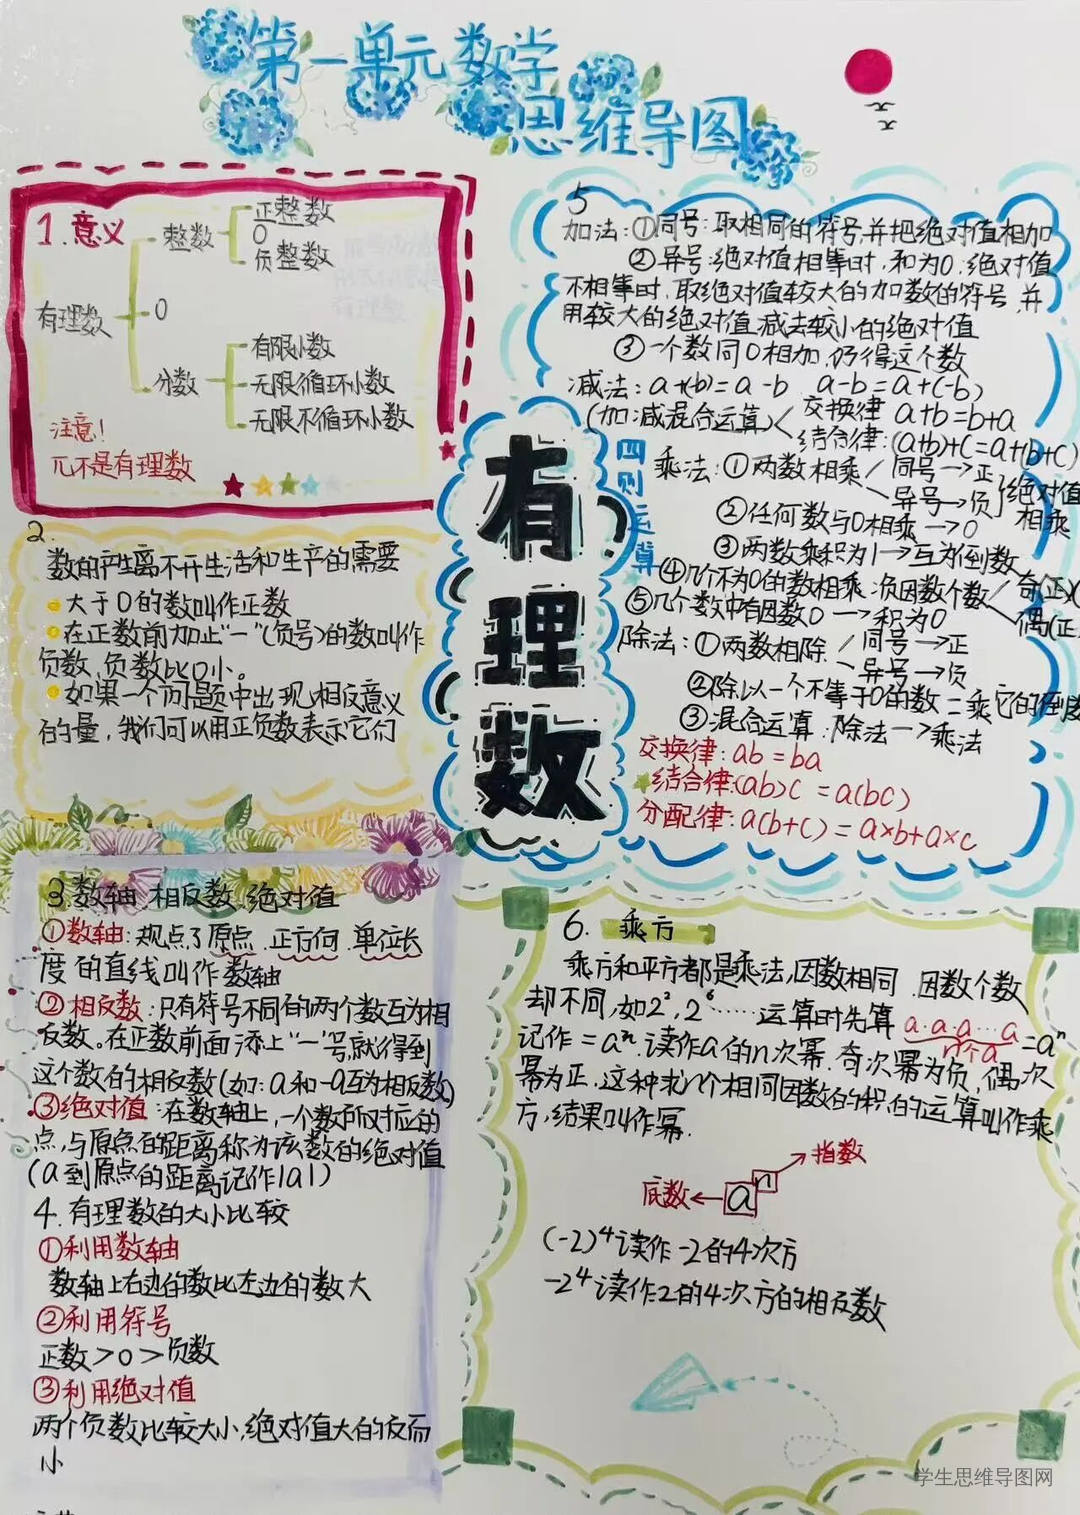 第一单元数学
思维导图
1.意义
有理数
整数
正整数
0
负整数
0
分数
有限小数
无限循环小数
无限不循环小数
注意!
π不是有理数
2.
数的产生离不开生活和生产的需要
大于0的数叫作正数
在正数前加上"一"(负号)的数叫作
负数,负数比0小。
如果一个问题中出现相反意义
的量,我们可以用正负数表示它们
3.数轴.相反数.绝对值
①数轴:规点了原点.正方向.单位长
度的直线叫作数轴
②相反数:只有符号不同的两个数互为相
反数。在正数前面添上"一"号,就得到
这个数的相反数(如:a和-a互为相反数)
③绝对值:在数轴上,一个数所对应的
点,与原点的距离称为该数的绝对值
(a到原点的距离记作|a|)
4.有理数的大小比较
①利用数轴
数轴上右边的数比左边的数大
②利用符号
正数>0>负数
③利用绝对值
两个负数比较大小,绝对值大的反而
小
有理数
四则运算
5
加法:①同号:取相同的符号,并把绝对值相加
②异号:绝对值相等时,和为0.绝对值
不相等时,取绝对值较大的加数的符号,并
用较大的绝对值减去较小的绝对值
③一个数同0相加,仍得这个数
减法:a-(b)=a-b a-b=a+(-b)
(加.减混合运算)
交换律 a+b=b+a
结合律:(a+b)+c=a+(b+c)
乘法:①两数相乘 同号→正
异号→负
绝对值
相乘
②任何数与0相乘→0
③两数乘积为1→互为倒数
④几个不为0的数相乘:负因数个数 奇(正)(
偶(正
⑤几个数中有因数0→积为0
除法:①两数相除 同号→正
异号→负
②除以一个不等于0的数=乘它的倒数
③混合运算:除法→乘法
交换律:ab=ba
结合律:(ab)c=a(bc)
分配律:a(b+c)=a×b+a×c
6. 乘方
乘方和平方都是乘法,因数相同.因数个数
却不同,如2²,2⁶……运算时先算 a·a·a…a =aⁿ
n个a
记作=aⁿ.读作a的n次幂.奇次幂为负,偶次
幂为正.这种求n个相同因数的积的运算叫作乘
方,结果叫作幂.
指数
底数←aⁿ
(-2)⁴读作-2的4次方
-2⁴读作2的4次方的相反数
学生思维导图网